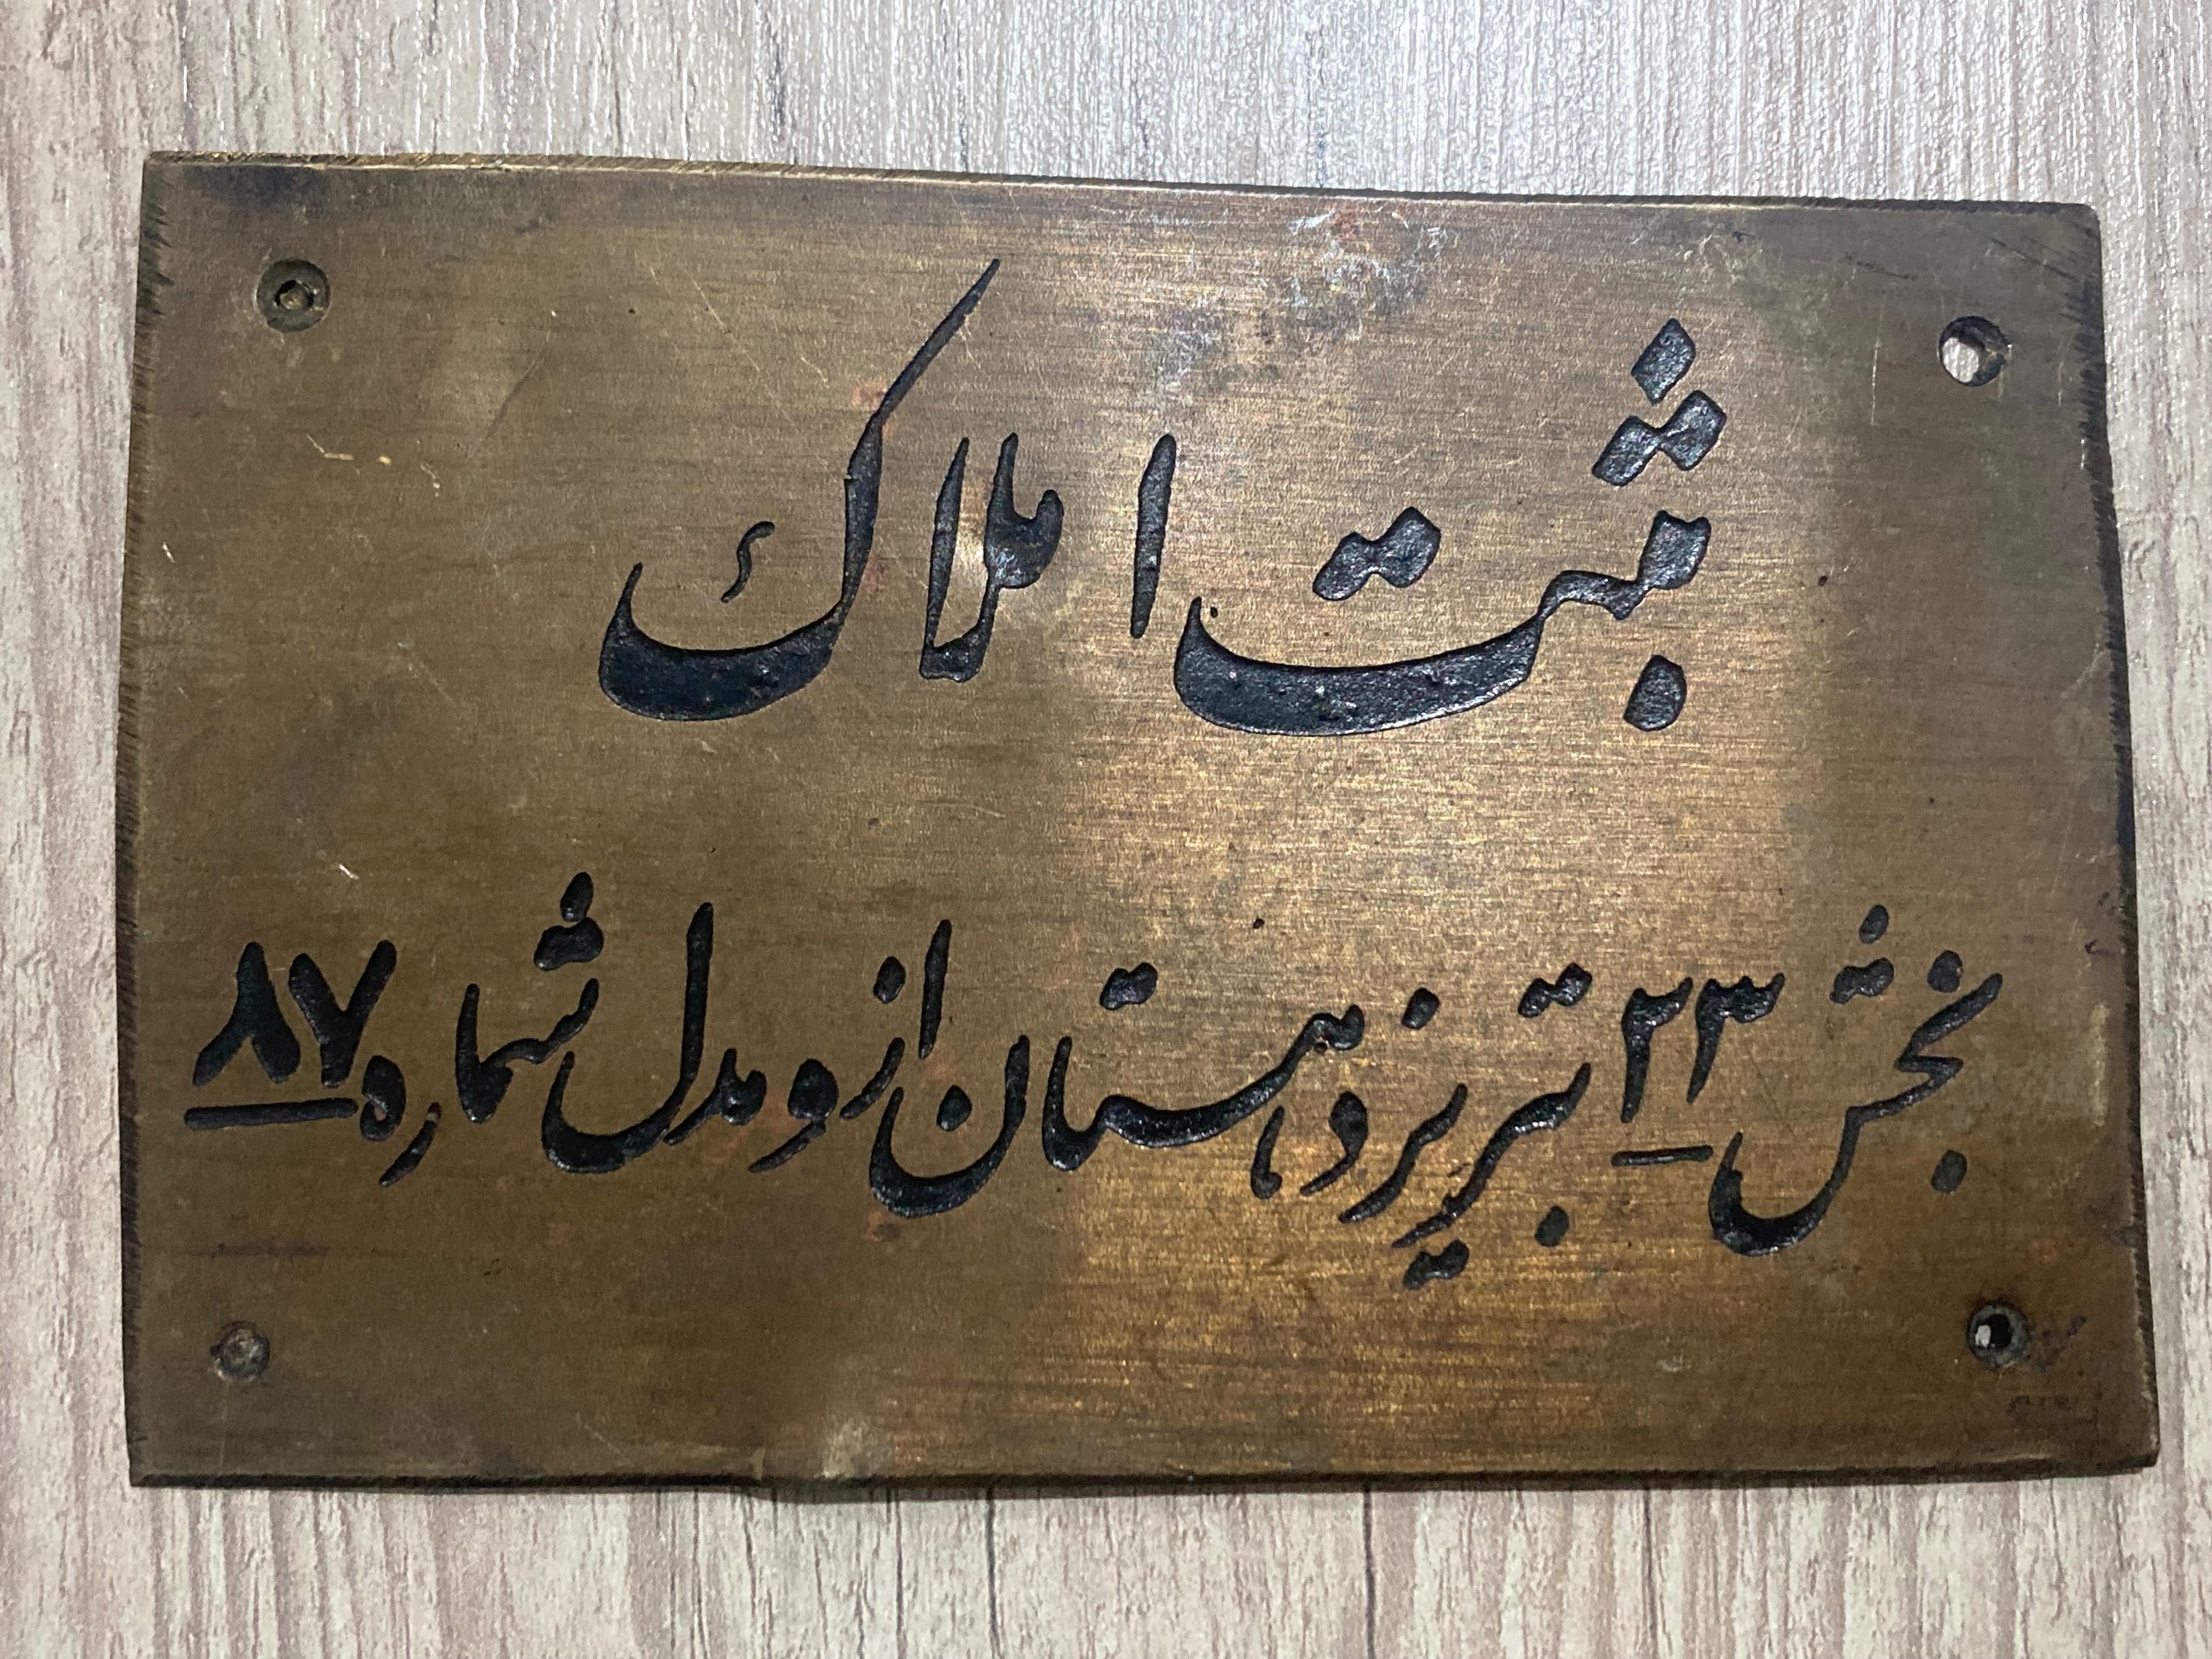 ثبت املاک
بخش ۲۳ تبریز دهستان ازومدل شماره ۸۷